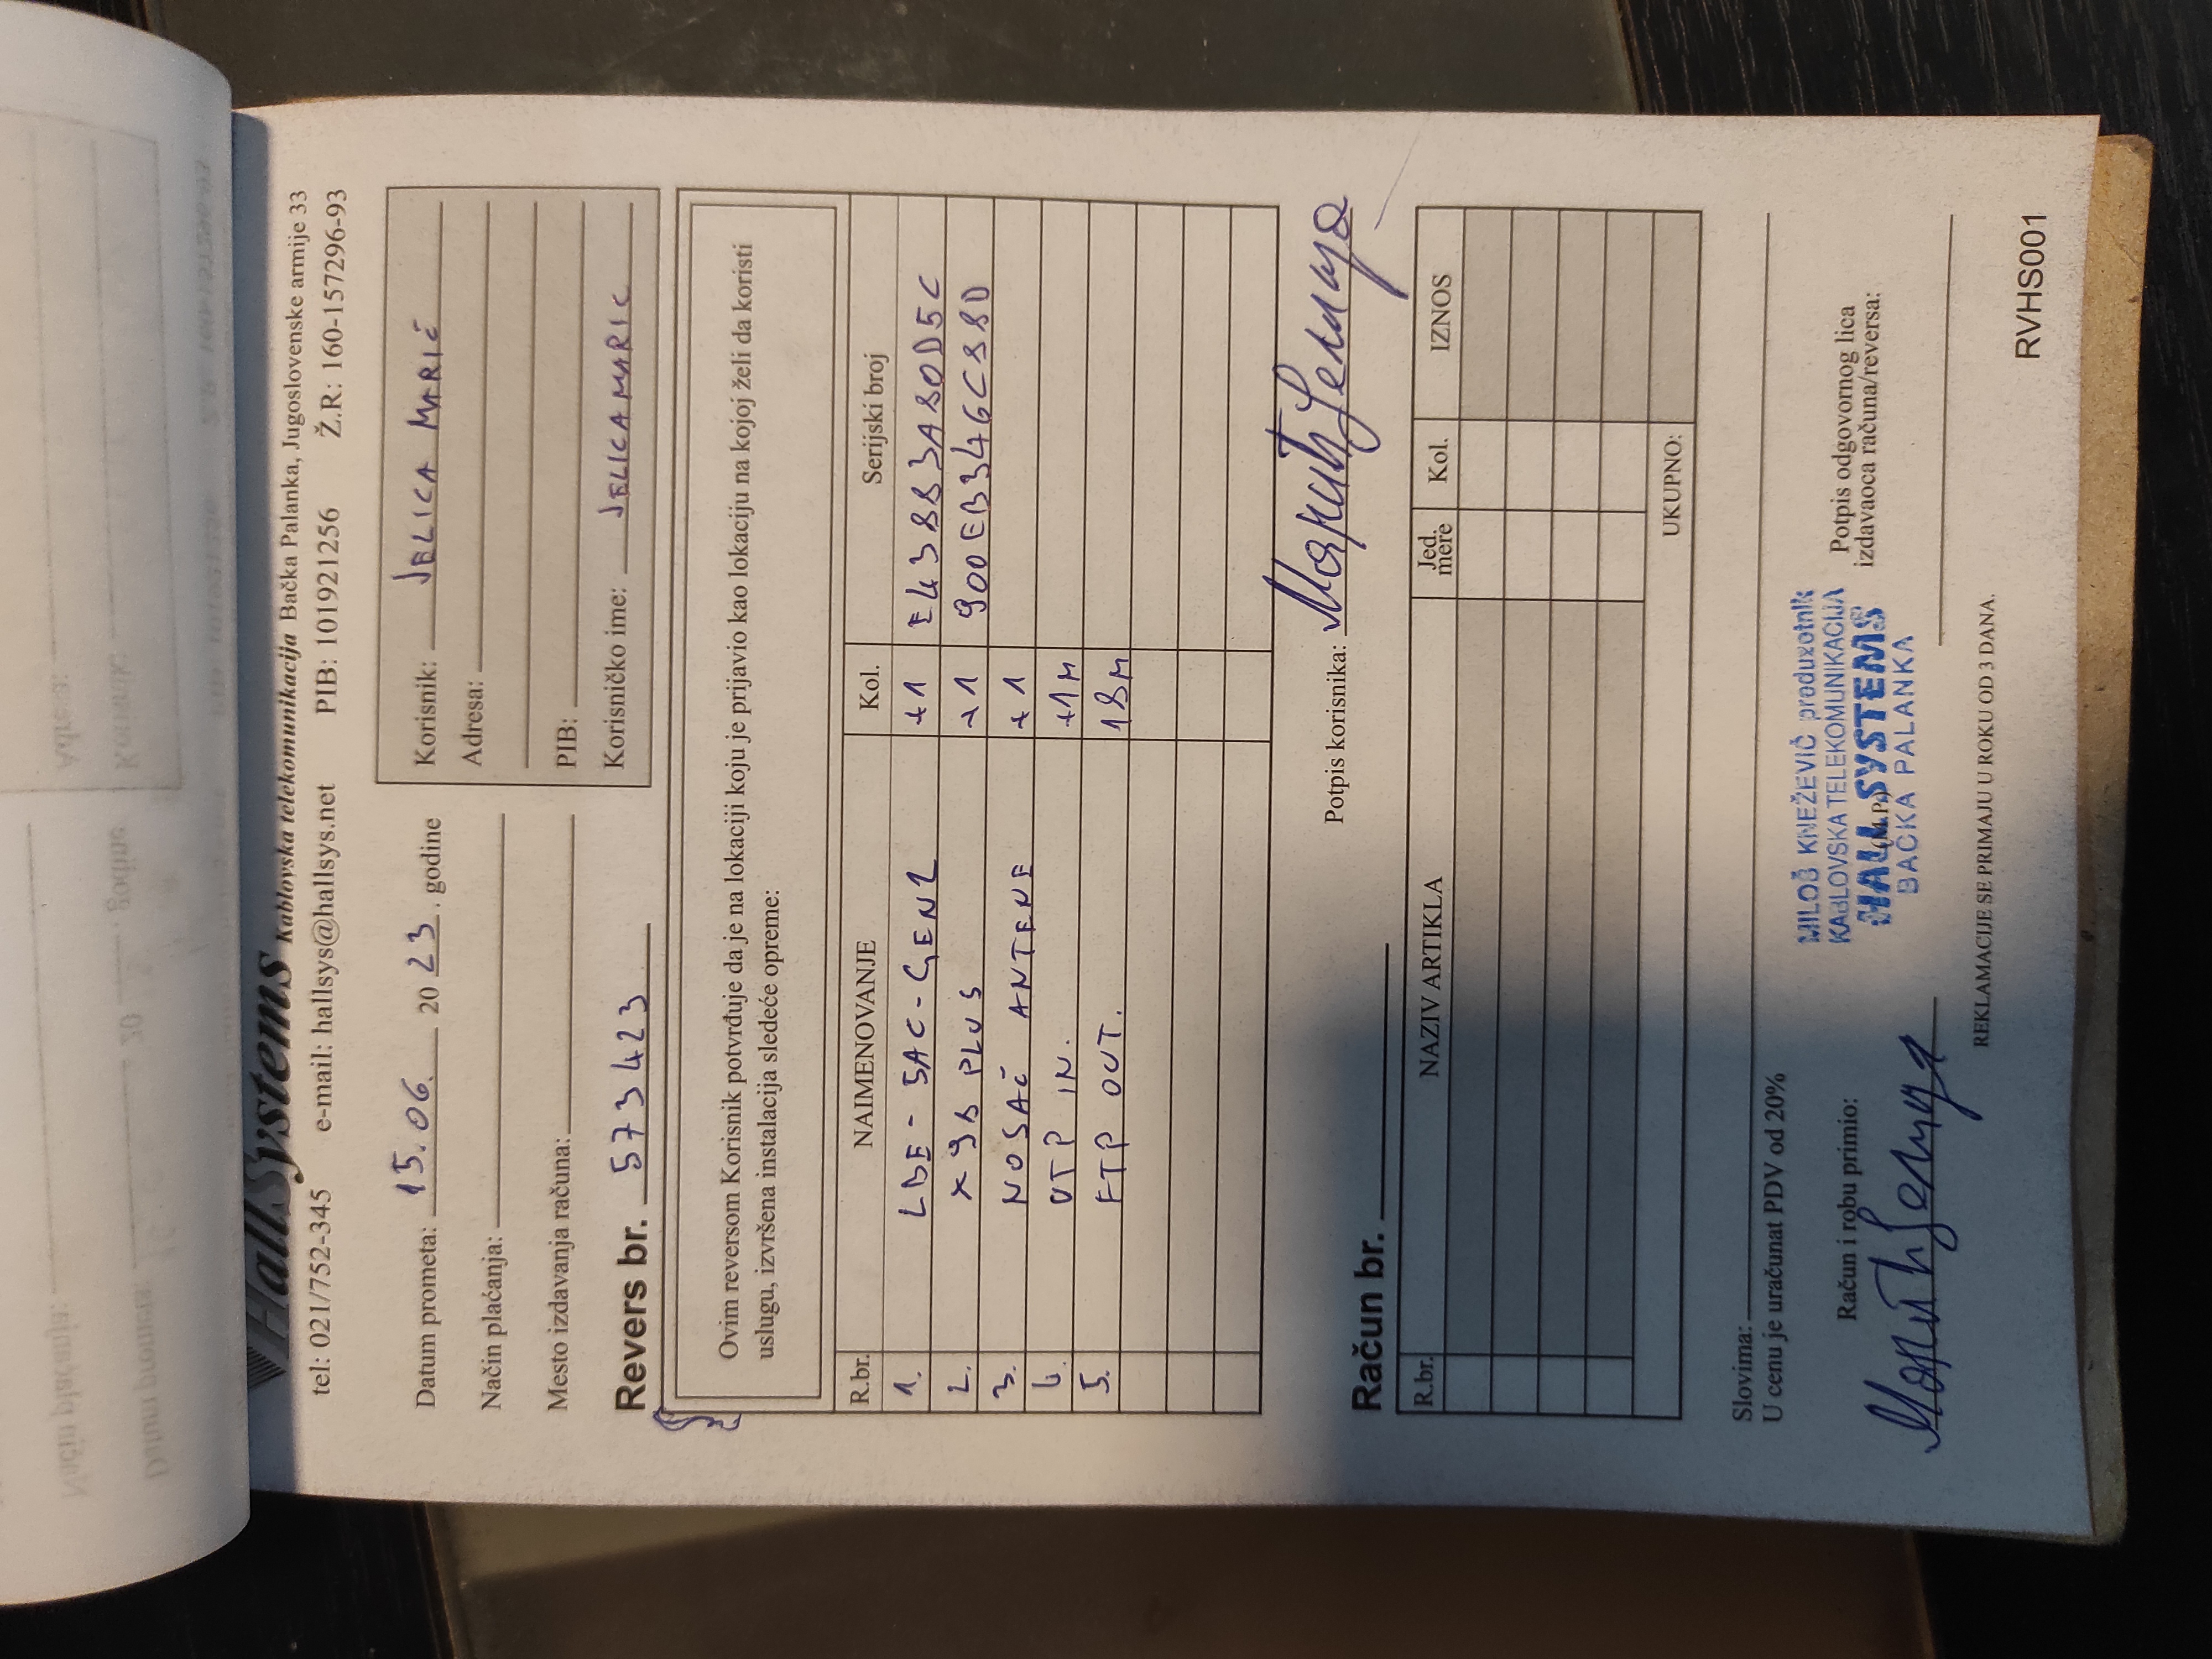 HallSystems Kablovska telekomunikacija Bačka Palanka, Jugoslovenske armije 33
tel: 021/752-345 e-mail: hallsys@hallsys.net PIB: 101921256 Ž.R: 160-157296-93
Datum prometa: 15.06. 2023. godine
Način plaćanja:
Mesto izdavanja računa:
Korisnik: JELICA MARIĆ
Adresa:
PIB:
Korisničko ime: JELICAMARIC
Revers br. 573423
Ovim reversom Korisnik potvrđuje da je na lokaciji koju je prijavio kao lokaciju na kojoj želi da koristi
uslugu, izvršena instalacija sledeće opreme:
R.br. NAIMENOVANJE Kol. Serijski broj
1. LBE-5AC-GEN2 +1 E43883A80D5C
2. X98 PLUS +1 900EB346C88D
3. NOSAČ ANTENE +1
4. UTP IN. +1M
5. FTP OUT. 18M
Potpis korisnika: Марић Јелица
Račun br.
R.br. NAZIV ARTIKLA Jed. mere Kol. IZNOS
UKUPNO:
Slovima:
U cenu je uračunat PDV od 20%
Račun i robu primio:
Марић Јелица
MILOŠ KNEŽEVIĆ preduzetnik
KABLOVSKA TELEKOMUNIKACIJA
(M.P.)
HALL SYSTEMS
BAČKA PALANKA
Potpis odgovornog lica
izdavaoca računa/reversa:
REKLAMACIJE SE PRIMAJU U ROKU OD 3 DANA.
RVHS001